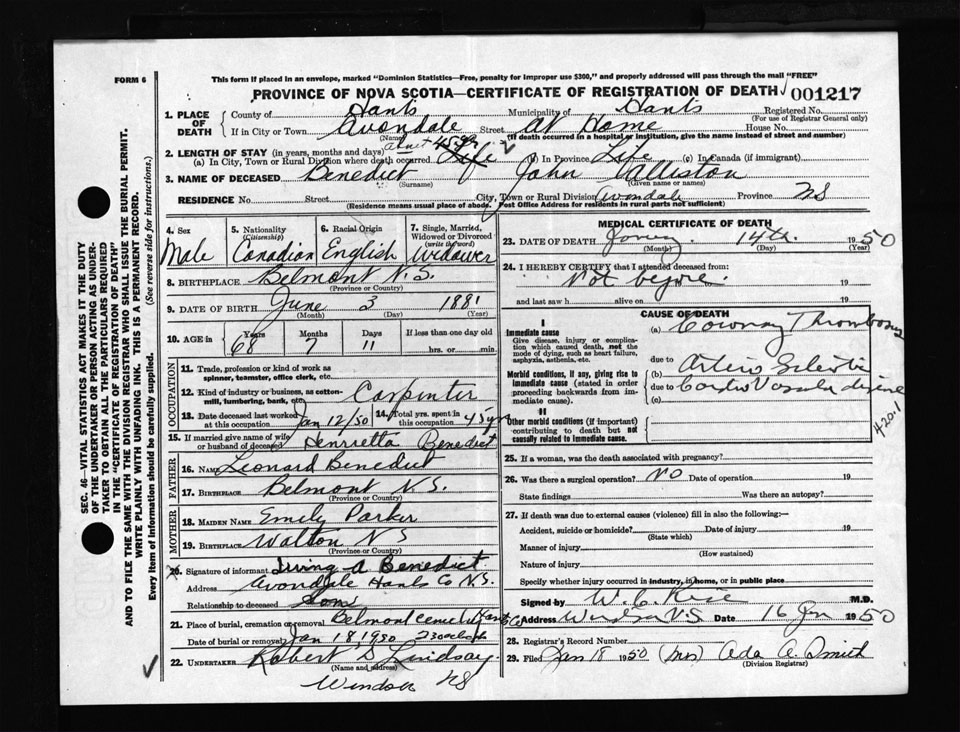 FORM 6
This form if placed in an envelope, marked "Dominion Statistics—Free, penalty for improper use $300," and properly addressed will pass through the mail "FREE"
PROVINCE OF NOVA SCOTIA—CERTIFICATE OF REGISTRATION OF DEATH 001217
1. PLACE OF DEATH
County of Hants Municipality of Hants Registered No.
(For use of Registrar General only)
If in City or Town Avondale Street At Home House No.
(Name) (If death occurred in a hospital or institution, give the name instead of street and number)
2. LENGTH OF STAY (in years, months and days) about 45 yr
(a) In City, Town or Rural Division where death occurred Life (b) In Province Life (c) In Canada (if immigrant)
3. NAME OF DECEASED Benedict John
(Surname) (Given name or names)
RESIDENCE No. Street City, Town or Rural Division Avondale Province NS
(Residence means usual place of abode. Post Office Address for residents in rural parts not sufficient)
4. Sex Male
5. Nationality (Citizenship) Canadian
6. Racial Origin English
7. Single, Married, Widowed or Divorced (write the word) Widower
8. BIRTHPLACE Belmont N.S.
(Province or Country)
9. DATE OF BIRTH June 3 1881
(Month) (Day) (Year)
10. AGE in Years Months Days If less than one day old
68 7 11 hrs. or min.
OCCUPATION
11. Trade, profession or kind of work as spinner, teamster, office clerk, etc.
12. Kind of industry or business, as cotton-mill, lumbering, bank, etc. Carpenter
13. Date deceased last worked at this occupation Jan 12/50 14. Total yrs. spent in this occupation 45 yrs
15. If married give name of wife or husband of deceased Henrietta Benedict
FATHER
16. NAME Leonard Benedict
17. BIRTHPLACE Belmont N.S.
(Province or Country)
MOTHER
18. MAIDEN NAME Emily Parker
19. BIRTHPLACE Walton N S
(Province or Country)
20. Signature of informant Irving A Benedict
Address Avondale Hants Co N.S.
Relationship to deceased Son
21. Place of burial, cremation or removal Belmont Hants Co
Date of burial or removal Jan 18 1950 230 oclock
22. UNDERTAKER Robert S Lindsay
(Name and address)
Windsor NS
MEDICAL CERTIFICATE OF DEATH
23. DATE OF DEATH 14th 1950
(Month) (Day)
24. I HEREBY CERTIFY that I attended deceased from:
Not before 19 19
and last saw h alive on 19
CAUSE OF DEATH
I
Immediate cause
Give disease, injury or complication which caused death, not the mode of dying, such as heart failure, asphyxia, asthenia, etc.
(a) Coronary Thrombosis
due to
Morbid conditions, if any, giving rise to immediate cause (stated in order proceeding backwards from immediate cause).
(b)
due to
(c)
420.1
II
Other morbid conditions (if important) contributing to death but not causally related to immediate cause.
25. If a woman, was the death associated with pregnancy?
26. Was there a surgical operation? NO Date of operation 19
State findings Was there an autopsy?
27. If death was due to external causes (violence) fill in also the following:—
Accident, suicide or homicide? Date of injury 19
(State which)
Manner of injury
(How sustained)
Nature of injury
Specify whether injury occurred in industry, in home, or in public place
Signed by W. C. M.D.
Address Windsor N.S. Date 16 Jan 1950
28. Registrar's Record Number
29. Filed Jan 18 1950 (Mrs) Ada A. Smith
(Division Registrar)
SEC. 46—VITAL STATISTICS ACT MAKES IT THE DUTY
OF THE UNDERTAKER OR PERSON ACTING AS UNDERTAKER TO OBTAIN ALL THE PARTICULARS REQUIRED
IN THE "CERTIFICATE OF REGISTRATION OF DEATH"
AND TO FILE THE SAME WITH THE DIVISION REGISTRAR WHO SHALL ISSUE THE BURIAL PERMIT.
WRITE PLAINLY WITH UNFADING INK. THIS IS A PERMANENT RECORD.
Every item of information should be carefully supplied. (See reverse side for instructions.)